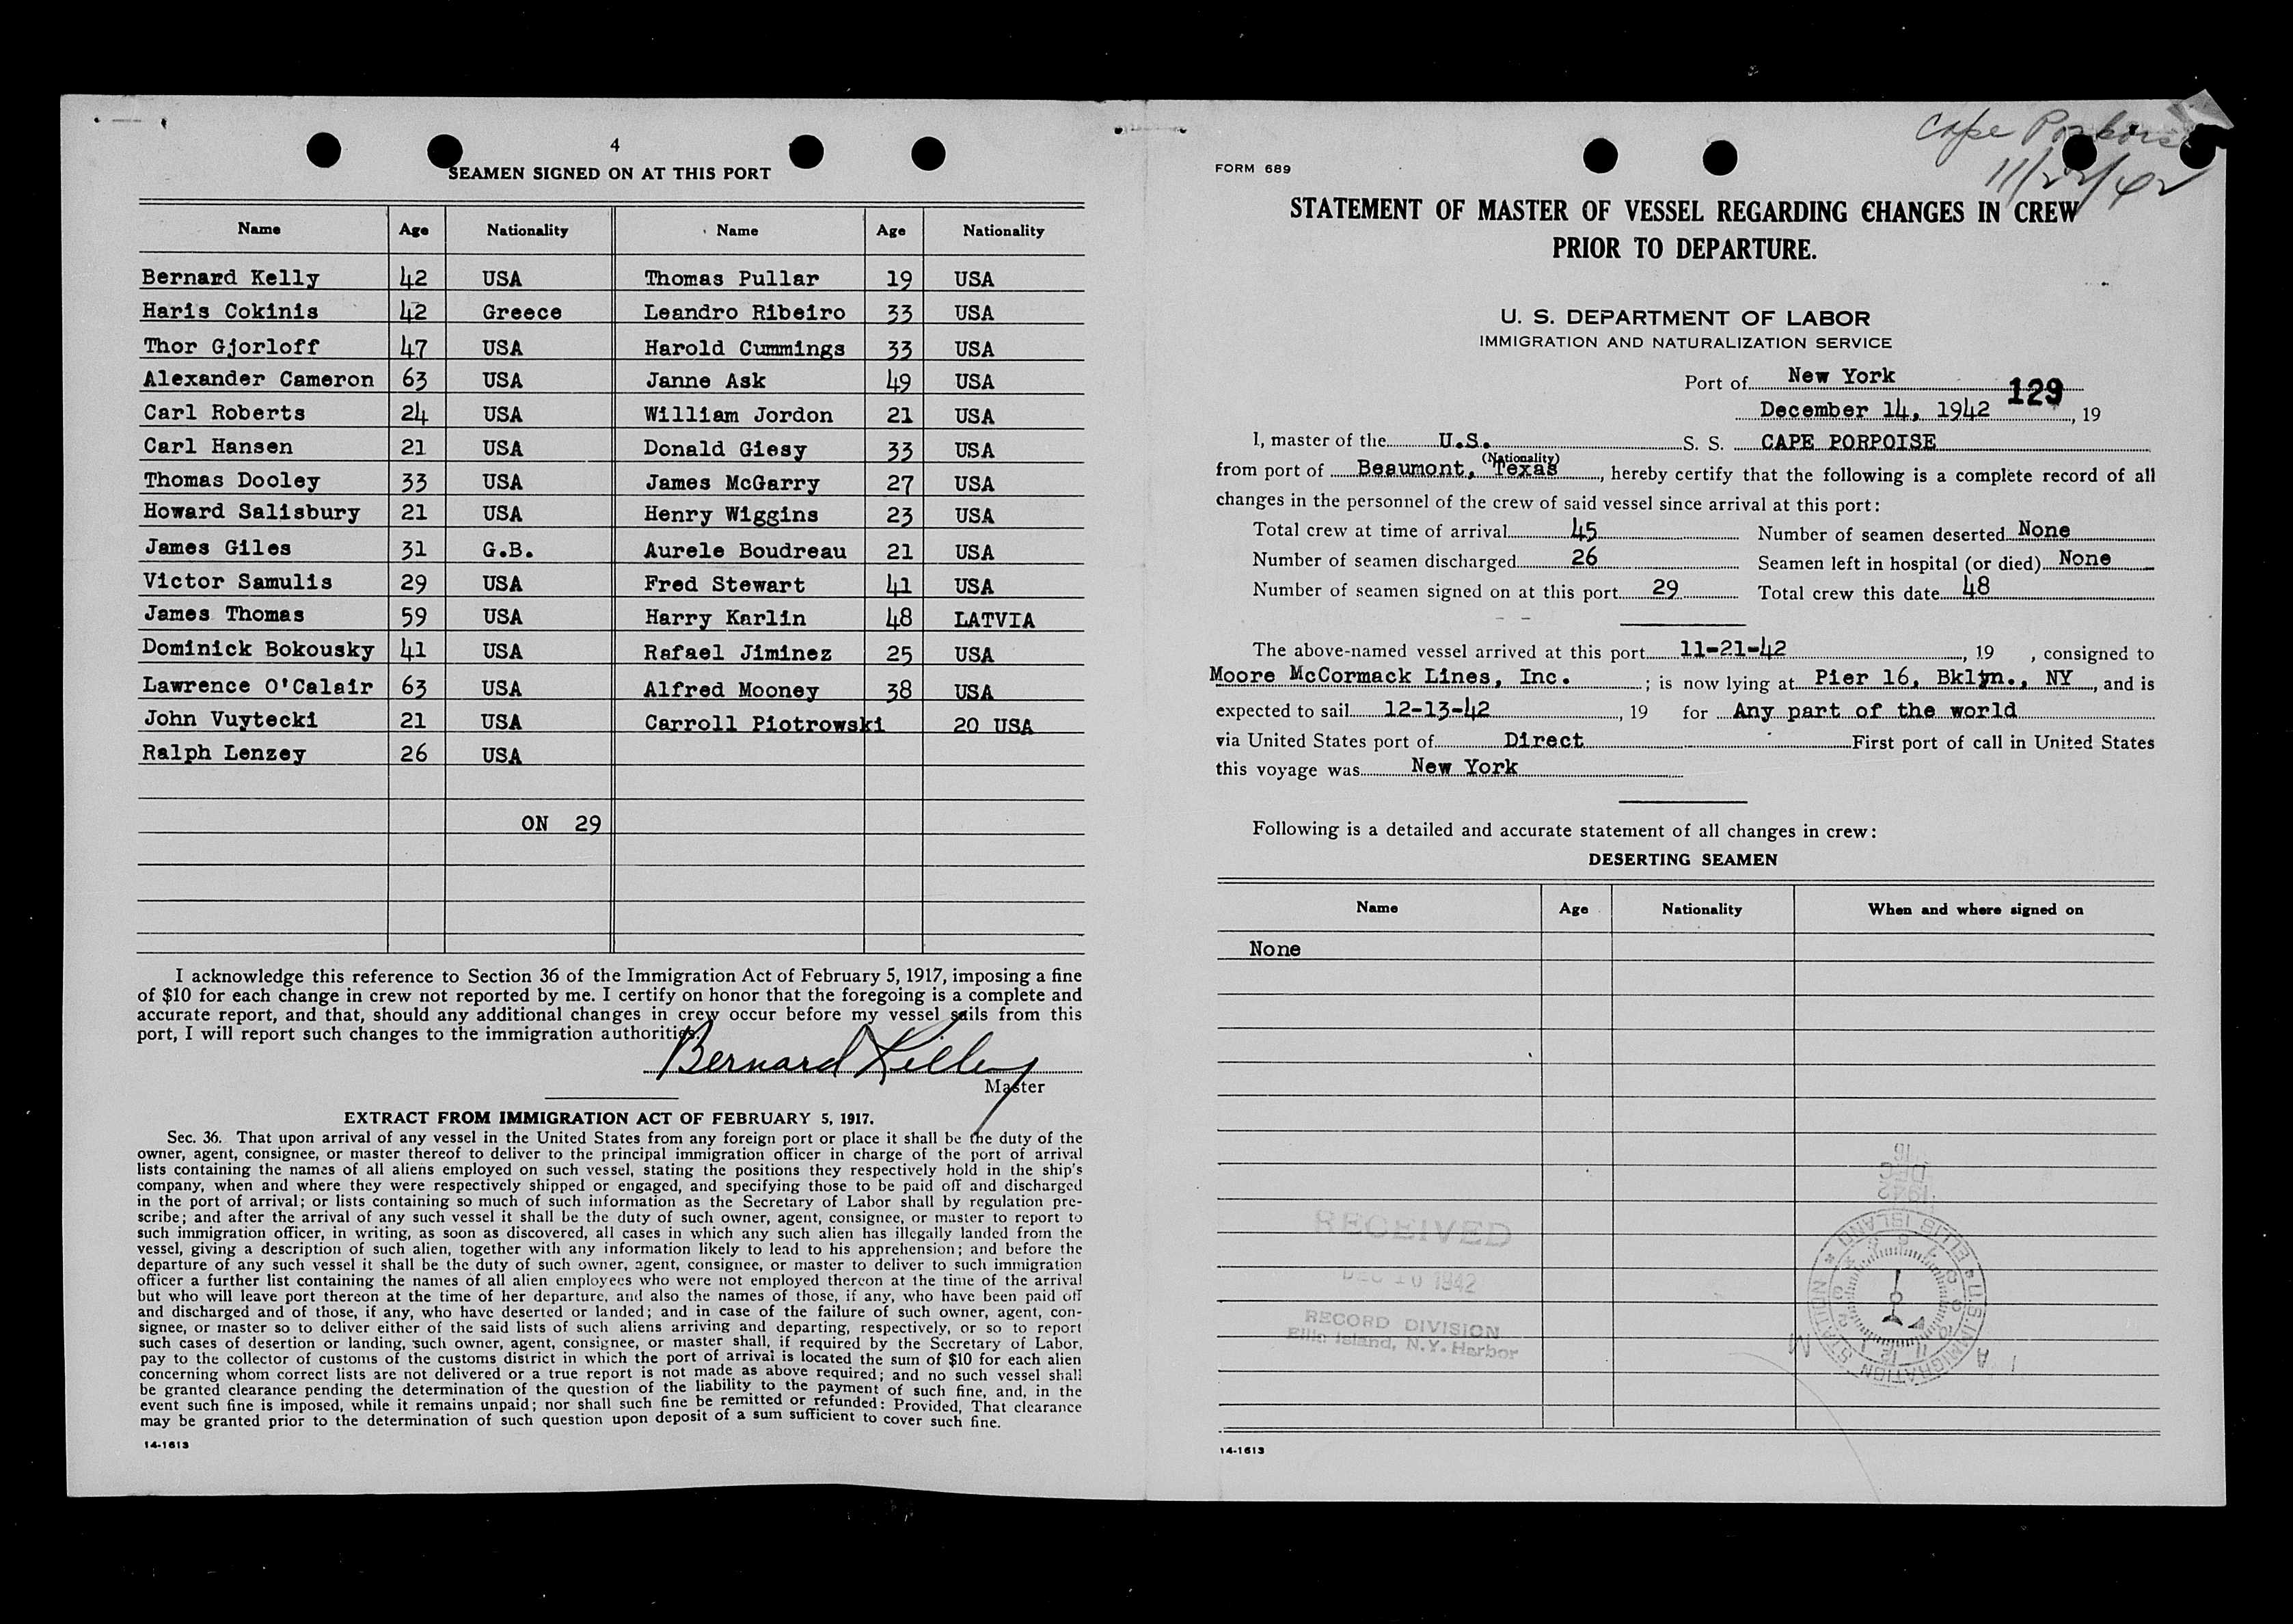 4
SEAMEN SIGNED ON AT THIS PORT
Name Age Nationality Name Age Nationality
Bernard Kelly 42 USA Thomas Pullar 19 USA
Haris Cokinis 42 Greece Leandro Ribeiro 33 USA
Thor Gjorloff 47 USA Harold Cummings 33 USA
Alexander Cameron 63 USA Janne Ask 49 USA
Carl Roberts 24 USA William Jordon 21 USA
Carl Hansen 21 USA Donald Giesy 33 USA
Thomas Dooley 33 USA James McGarry 27 USA
Howard Salisbury 21 USA Henry Wiggins 23 USA
James Giles 31 G.B. Aurele Boudreau 21 USA
Victor Samulis 29 USA Fred Stewart 41 USA
James Thomas 59 USA Harry Karlin 48 LATVIA
Dominick Bokousky 41 USA Rafael Jiminez 25 USA
Lawrence O'Calair 63 USA Alfred Mooney 38 USA
John Vuytecki 21 USA Carroll Piotrowski 20 USA
Ralph Lenzey 26 USA
ON 29
I acknowledge this reference to Section 36 of the Immigration Act of February 5, 1917, imposing a fine
of $10 for each change in crew not reported by me. I certify on honor that the foregoing is a complete and
accurate report, and that, should any additional changes in crew occur before my vessel sails from this
port, I will report such changes to the immigration authorities.
Bernard Kelley
Master
EXTRACT FROM IMMIGRATION ACT OF FEBRUARY 5, 1917.
Sec. 36. That upon arrival of any vessel in the United States from any foreign port or place it shall be the duty of the
owner, agent, consignee, or master thereof to deliver to the principal immigration officer in charge of the port of arrival
lists containing the names of all aliens employed on such vessel, stating the positions they respectively hold in the ship's
company, when and where they were respectively shipped or engaged, and specifying those to be paid off and discharged
in the port of arrival; or lists containing so much of such information as the Secretary of Labor shall by regulation pre-
scribe; and after the arrival of any such vessel it shall be the duty of such owner, agent, consignee, or master to report to
such immigration officer, in writing, as soon as discovered, all cases in which any such alien has illegally landed from the
vessel, giving a description of such alien, together with any information likely to lead to his apprehension; and before the
departure of any such vessel it shall be the duty of such owner, agent, consignee, or master to deliver to such immigration
officer a further list containing the names of all alien employees who were not employed thereon at the time of the arrival
but who will leave port thereon at the time of her departure, and also the names of those, if any, who have been paid off
and discharged and of those, if any, who have deserted or landed; and in case of the failure of such owner, agent, con-
signee, or master so to deliver either of the said lists of such aliens arriving and departing, respectively, or so to report
such cases of desertion or landing, such owner, agent, consignee, or master shall, if required by the Secretary of Labor,
pay to the collector of customs of the customs district in which the port of arrival is located the sum of $10 for each alien
concerning whom correct lists are not delivered or a true report is not made as above required; and no such vessel shall
be granted clearance pending the determination of the question of the liability to the payment of such fine, and, in the
event such fine is imposed, while it remains unpaid; nor shall such fine be remitted or refunded: Provided, That clearance
may be granted prior to the determination of such question upon deposit of a sum sufficient to cover such fine.
14-1613
Cape Porpoise
11/22/42
FORM 689
STATEMENT OF MASTER OF VESSEL REGARDING CHANGES IN CREW
PRIOR TO DEPARTURE.
U. S. DEPARTMENT OF LABOR
IMMIGRATION AND NATURALIZATION SERVICE
Port of New York
129
December 14, 1942, 19
I, master of the U.S. S. S. CAPE PORPOISE
(Nationality)
from port of Beaumont, Texas, hereby certify that the following is a complete record of all
changes in the personnel of the crew of said vessel since arrival at this port:
Total crew at time of arrival 45 Number of seamen deserted None
Number of seamen discharged 26 Seamen left in hospital (or died) None
Number of seamen signed on at this port 29 Total crew this date 48
The above-named vessel arrived at this port 11-21-42, 19 , consigned to
Moore McCormack Lines, Inc. ; is now lying at Pier 16, Bklyn., NY, and is
expected to sail 12-13-42, 19 for Any part of the world
via United States port of Direct First port of call in United States
this voyage was New York
Following is a detailed and accurate statement of all changes in crew:
DESERTING SEAMEN
Name Age Nationality When and where signed on
None
1942
DEC
16
RECEIVED
DEC 16 1942
RECORD DIVISION
Ellis Island, N.Y. Harbor
U.S. IMMIGRATION STATION ELLIS ISLAND
14-1613